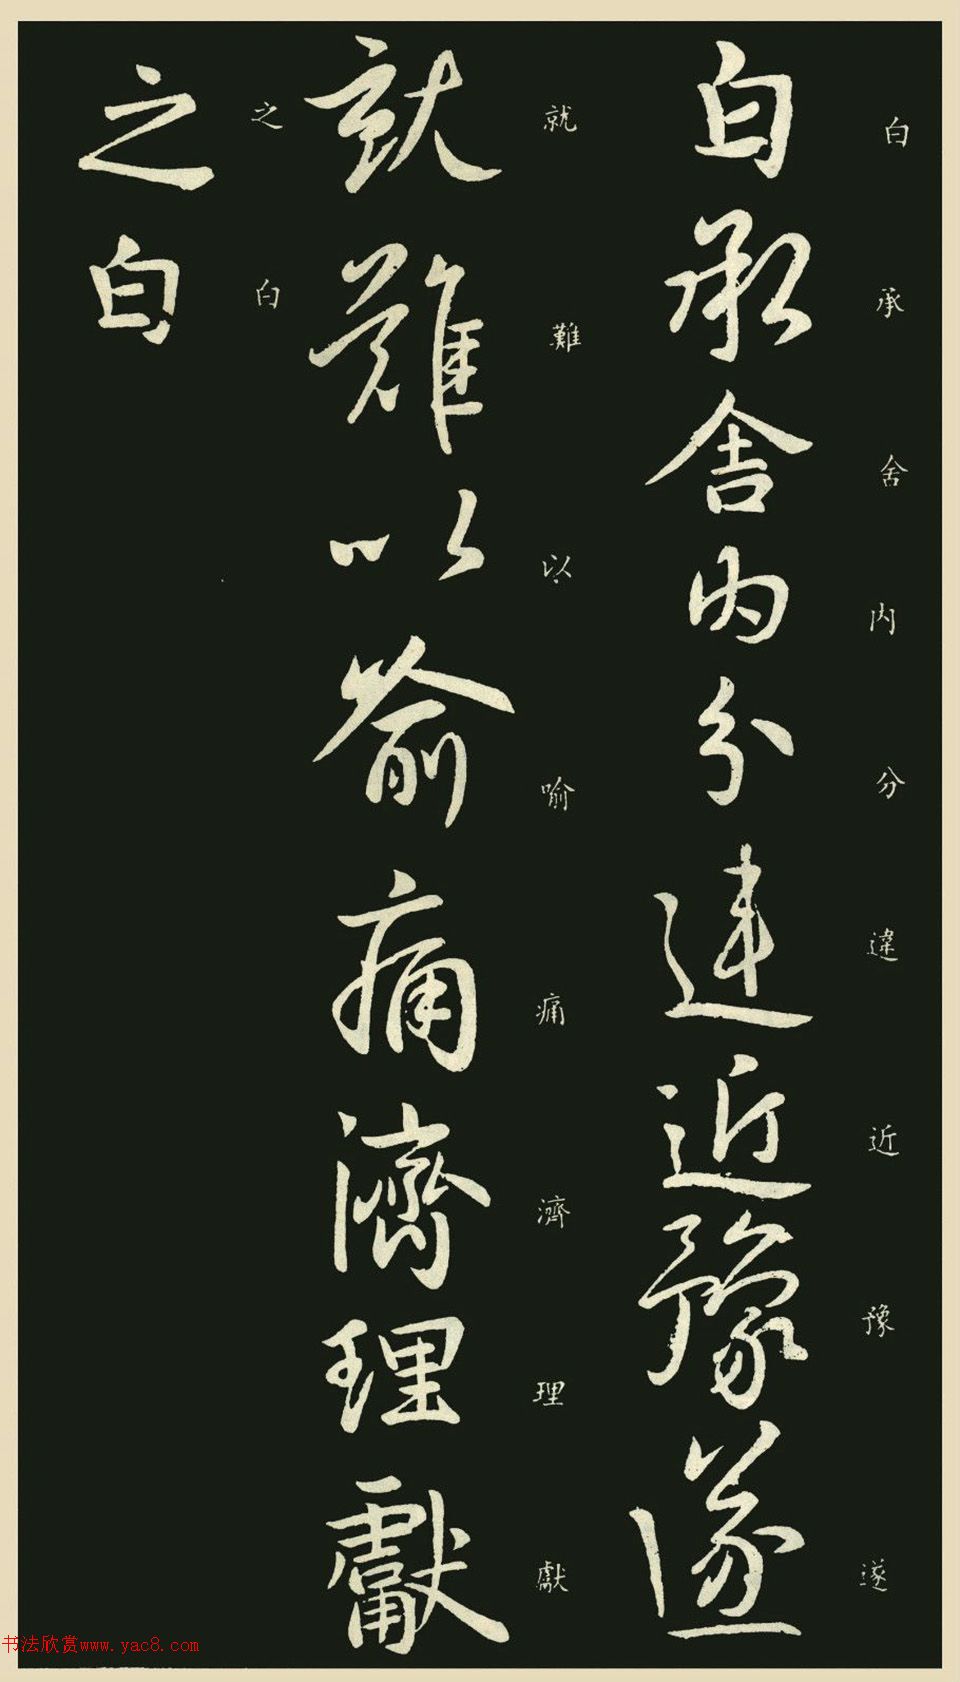 白承舍内分違近豫遂
白承舍内分違近豫遂
就難以喻痛濟理獻
就難以喻痛濟理獻
之白
之白
书法欣赏www.yac8.com